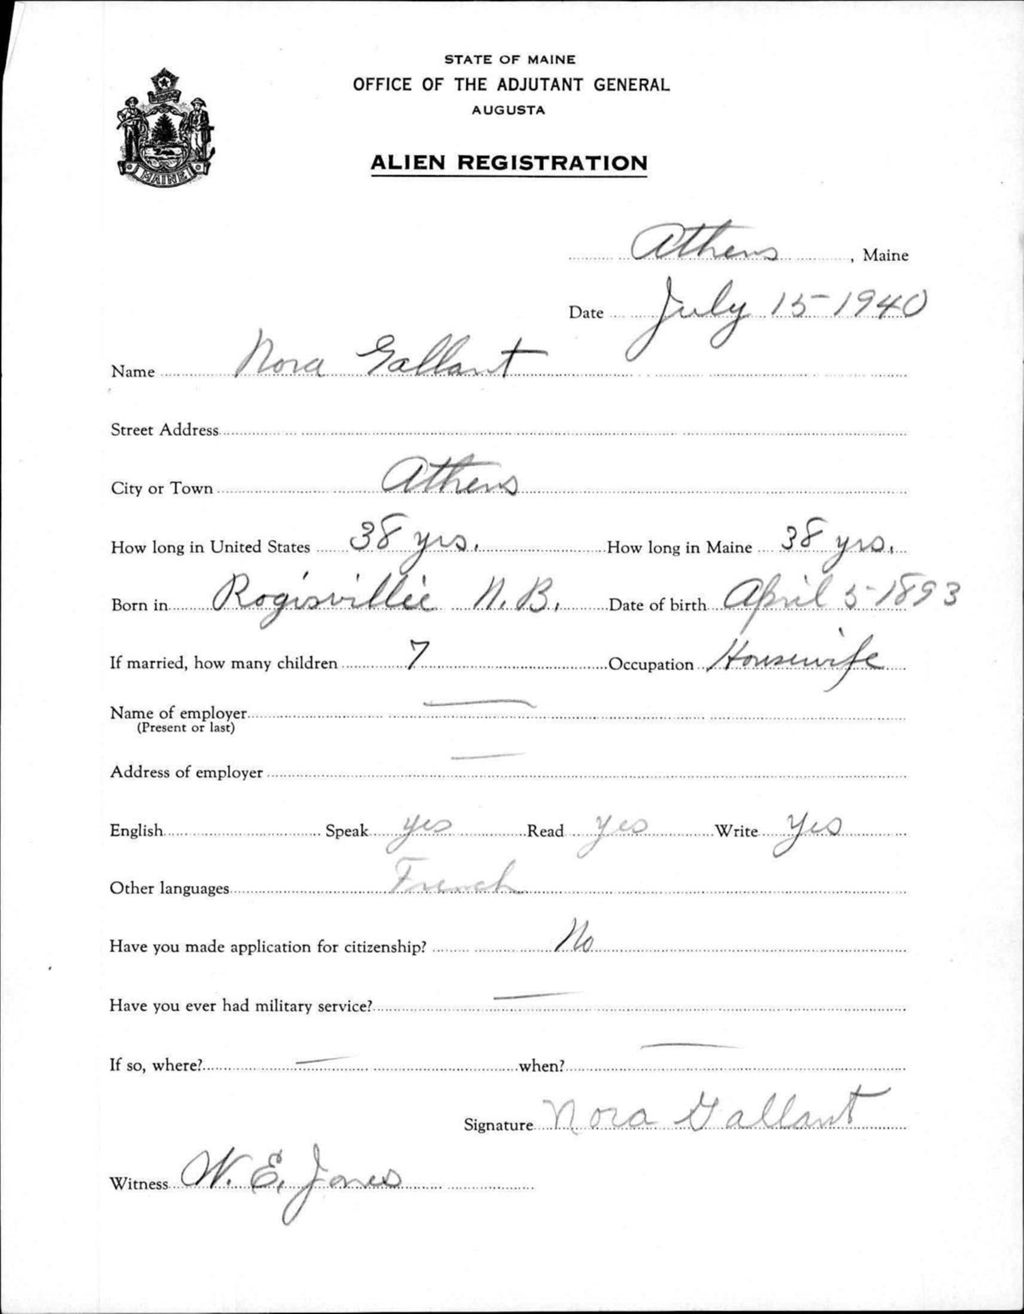 STATE OF MAINE
OFFICE OF THE ADJUTANT GENERAL
AUGUSTA
ALIEN REGISTRATION
MAINE
Athens, Maine
Date July 15-1940
Name Nora Gallant
Street Address
City or Town Athens
How long in United States 38 yrs. How long in Maine 38 yrs.
Born in Rogisville N.B. Date of birth April 5-1893
If married, how many children 7 Occupation Housewife
Name of employer —
(Present or last)
Address of employer —
English Speak yes Read Yes Write Yes
Other languages French
Have you made application for citizenship? No
Have you ever had military service? —
If so, where? — when? —
Signature Nora Gallant
Witness W. E. Jones